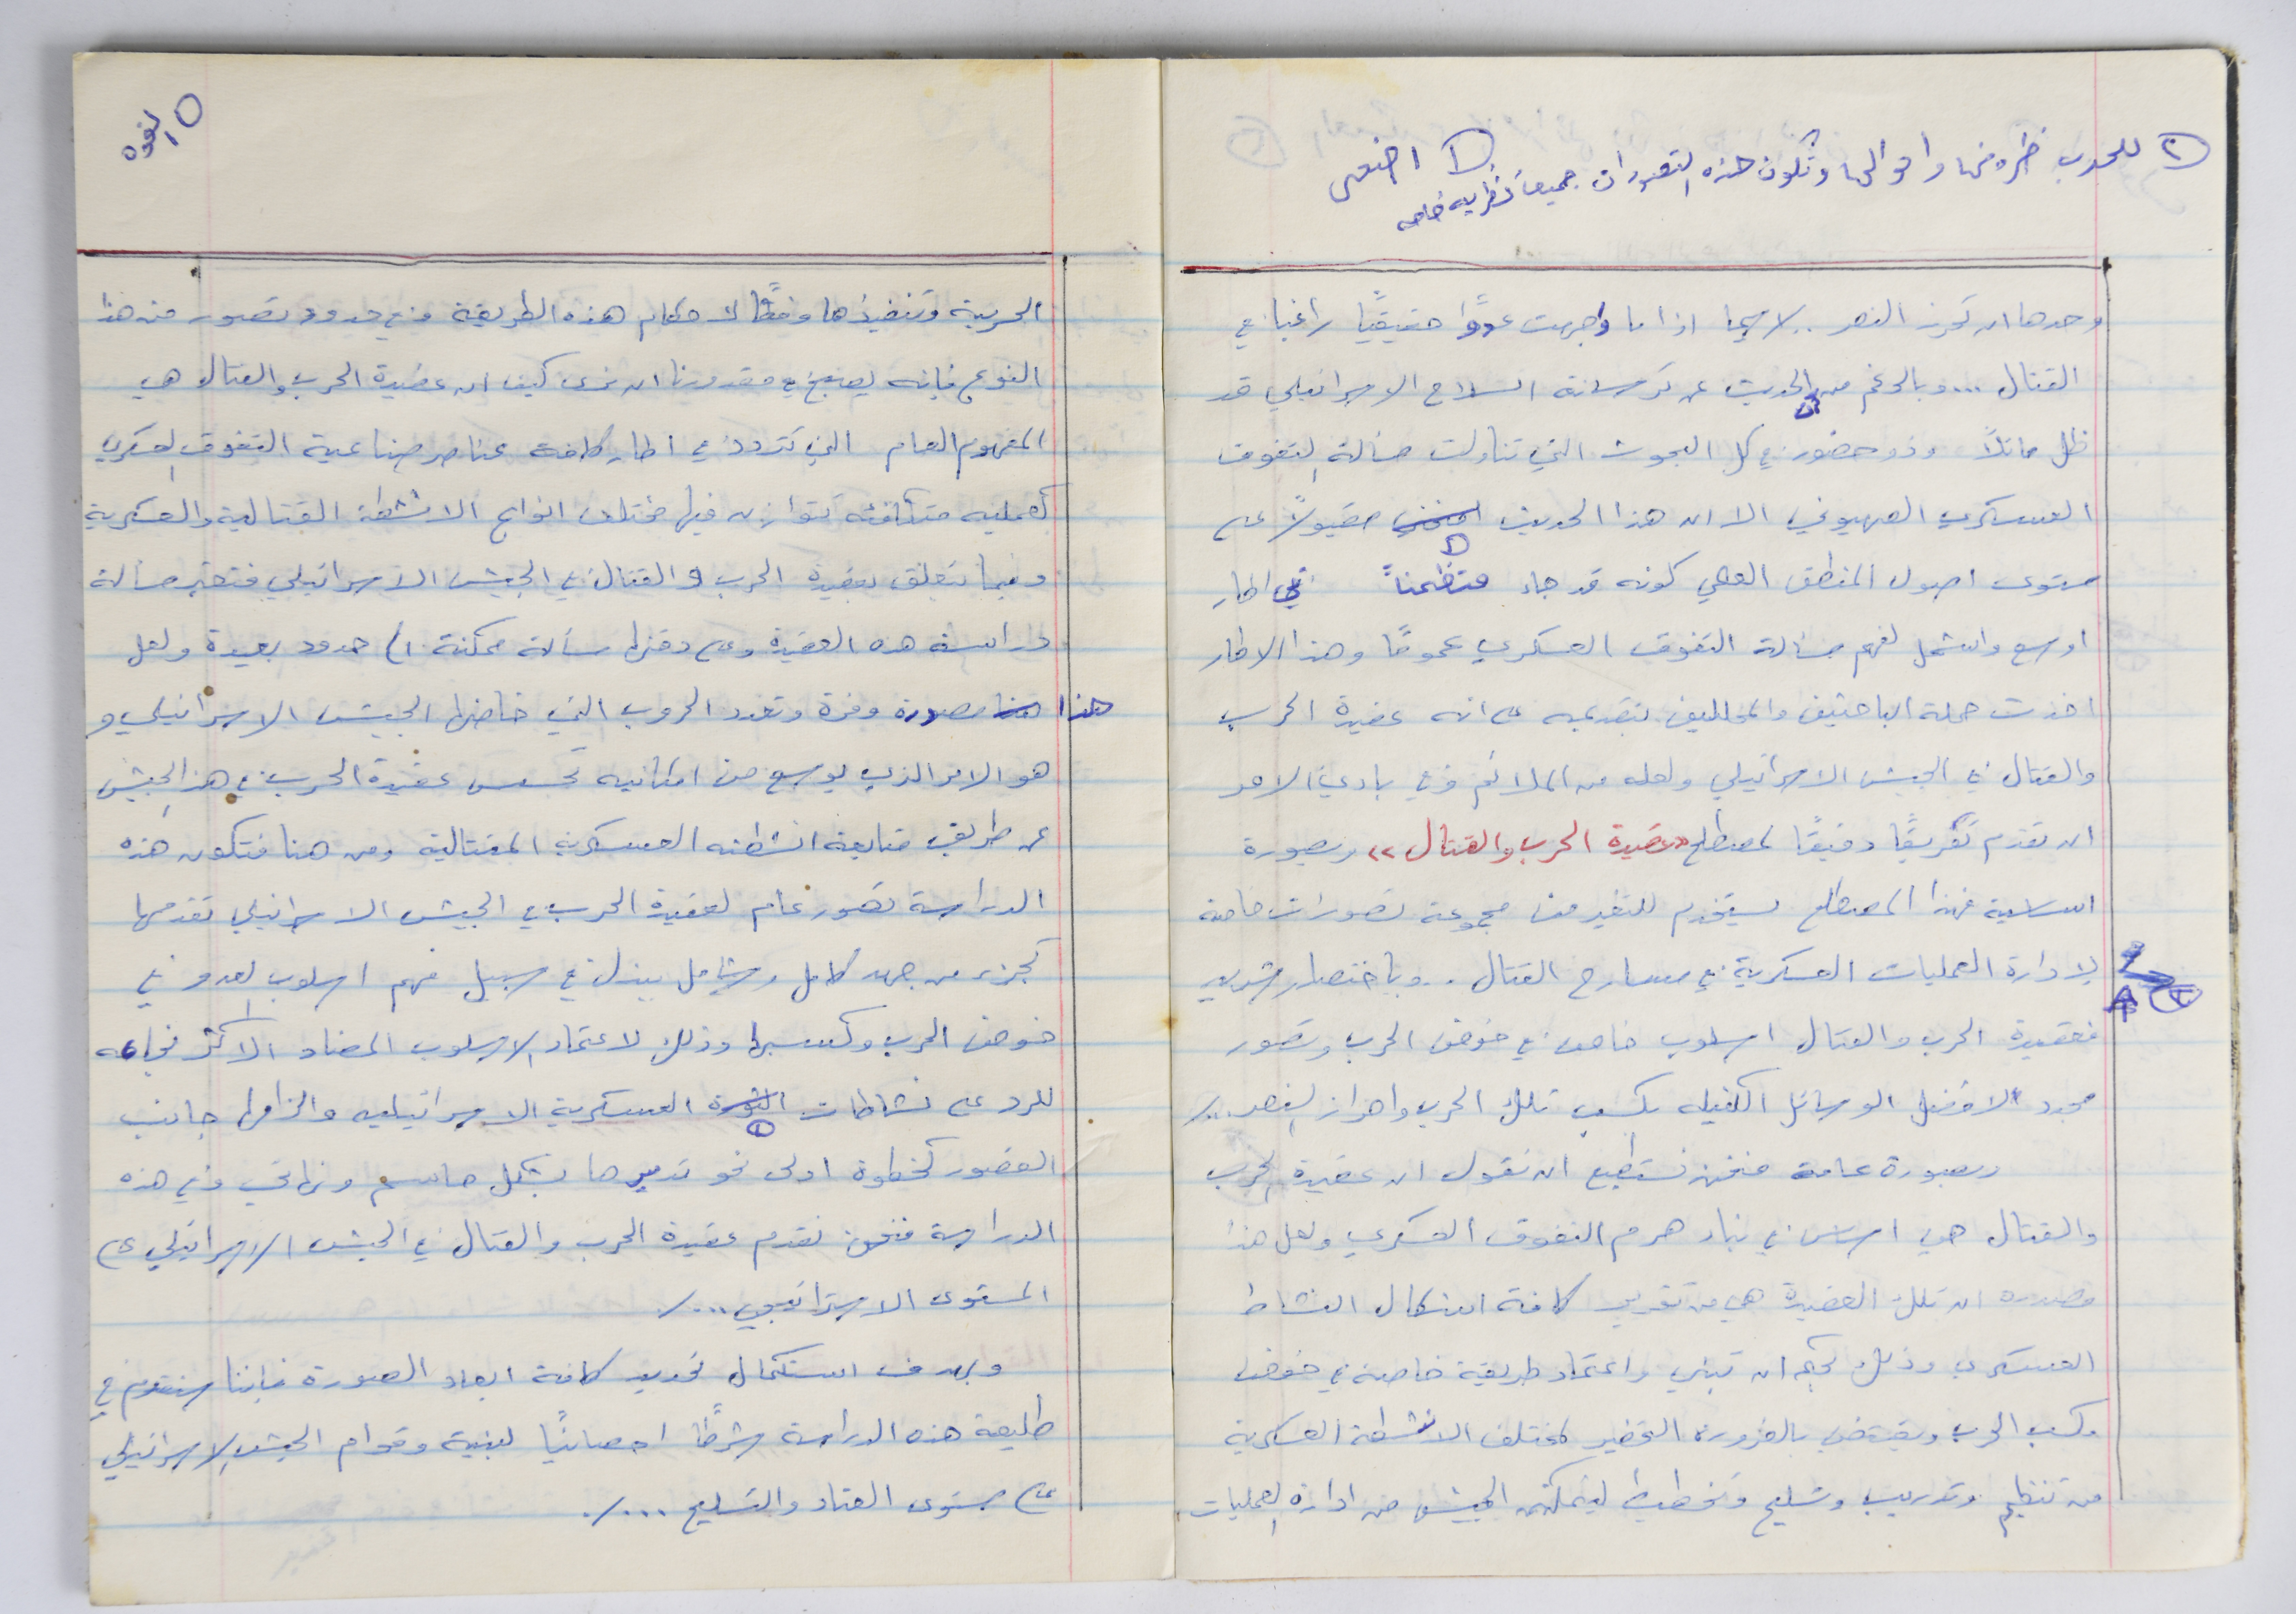 ② للحرب ظروفها واحوالها وتكون هذه التصورات جميعاً نظريه خاصه
① اضحى
وحدها ان تحرز النصر .. لا سيما اذا ما واجهت عدوًا حقيقيًا راغبا في
القتال ... وبالرغم من ان الحديث عن ترسانة السلاح الاسرائيلي قد
ظل ماثلاً وذو حضور في كل البحوث التي تناولت مسألة التفوق
العسكري الصهيوني الا ان هذا الحديث مقبولاً على
مستوى اصول المنطق العلمي كونه قد جاء متضمناً في اطار
اوسع واشمل لفهم مسألة التفوق العسكري عمومًا وهذا الاطار
اخذت جملة الباحثين والمحللين بتقديمه على انه عقيدة الحرب
والقتال في الجيش الاسرائيلي ولعله من الملائم وفي بادئ الامر
ان نقدم تعريفًا دقيقًا لمصطلح «عقيدة الحرب والقتال» وبصورة
اساسية فهذا المصطلح يستخدم للتعبير عن مجموعة تصورات خاصة
لادارة العمليات العسكرية في مسارح القتال .. وباختصار شديد
②
فعقيدة الحرب والقتال اسلوب خاص في خوض الحرب وتصور
محدد لافضل الوسائل الكفيله بكسب تلك الحرب واحراز النصر ../
وبصورة عامة فنحن نستطيع ان نقول ان عقيدة الحرب
والقتال هي اساس في بناء هرم التفوق العسكري ولعل هذا
مصدره ان تلك العقيدة هي من تقود كافة اشكال النشاط
العسكري وذلك بحكم ان تبني واعتماد طريقة خاصة في خوض
وكسب الحرب ويقتضي بالضرورة التحضير لمختلف الانشطة العسكرية
من تنظيم وتدريب وتسليح وتخطيط ليتمكن الجيش من ادارة العمليات
① القوة
الحربية وتنفيذها وفقًا لاحكام هذه الطريقة وفي حدود تصور من هذا
النوع فإنه يصبح في مقدورنا ان نرى كيف ان عقيدة الحرب والقتال هي
المفهوم العام الذي تتردد في اطار كافة عناصر صناعية التفوق العسكري
كعمليه متكافئه تتوازن فيها مختلف انواع الانشطة القتالية والعسكرية
وفيما يتعلق بعقيدة الحرب والقتال في الجيش الاسرائيلي فتعتبر مسألة
دراسة هذه العقيدة وعلى دقتها مسألة ممكنة الى حدود بعيدة ولعل
هذا مصدره وفرة وتعدد الحروب التي خاضها الجيش الاسرائيلي و
هو الامر الذي يوسع من امكانيه تحسس عقيدة الحرب في هذا الجيش
عن طريق متابعة انشطته العسكرية القتالية ومن هنا فتكون هذه
الدراسة تصور عام لعقيدة الحرب في الجيش الاسرائيلي نقدمها
كجزء من جهد كامل وشامل يبذل في سبيل فهم اسلوب العدو في
خوض الحرب وكسبها وذلك لاعتماد الاسلوب المضاد الاكثر نجاعه
للرد على نشاطات ① العسكرية الاسرائيليه والزامها جانب
القصور كخطوة اولى نحو تدميرها بشكل حاسم ونهائي وفي هذه
الدراسة فنحن نقدم عقيدة الحرب والقتال في الجيش الاسرائيلي على
المستوى الاستراتيجي .../.
وبهدف استكمال تحديد كافة ابعاد الصورة فإننا سنقدم في
طليعة هذه الدراسة شرحًا احصائيًا لبنية وقوام الجيش الاسرائيلي
على مستوى العتاد والتسليح .../.